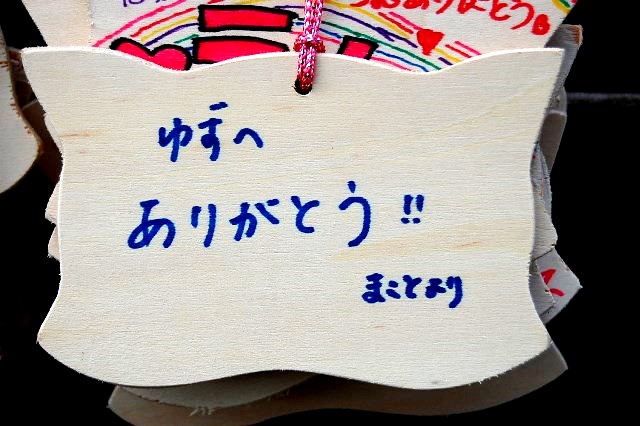 ありがとう
ゆずへ
ありがとう!!
まことより